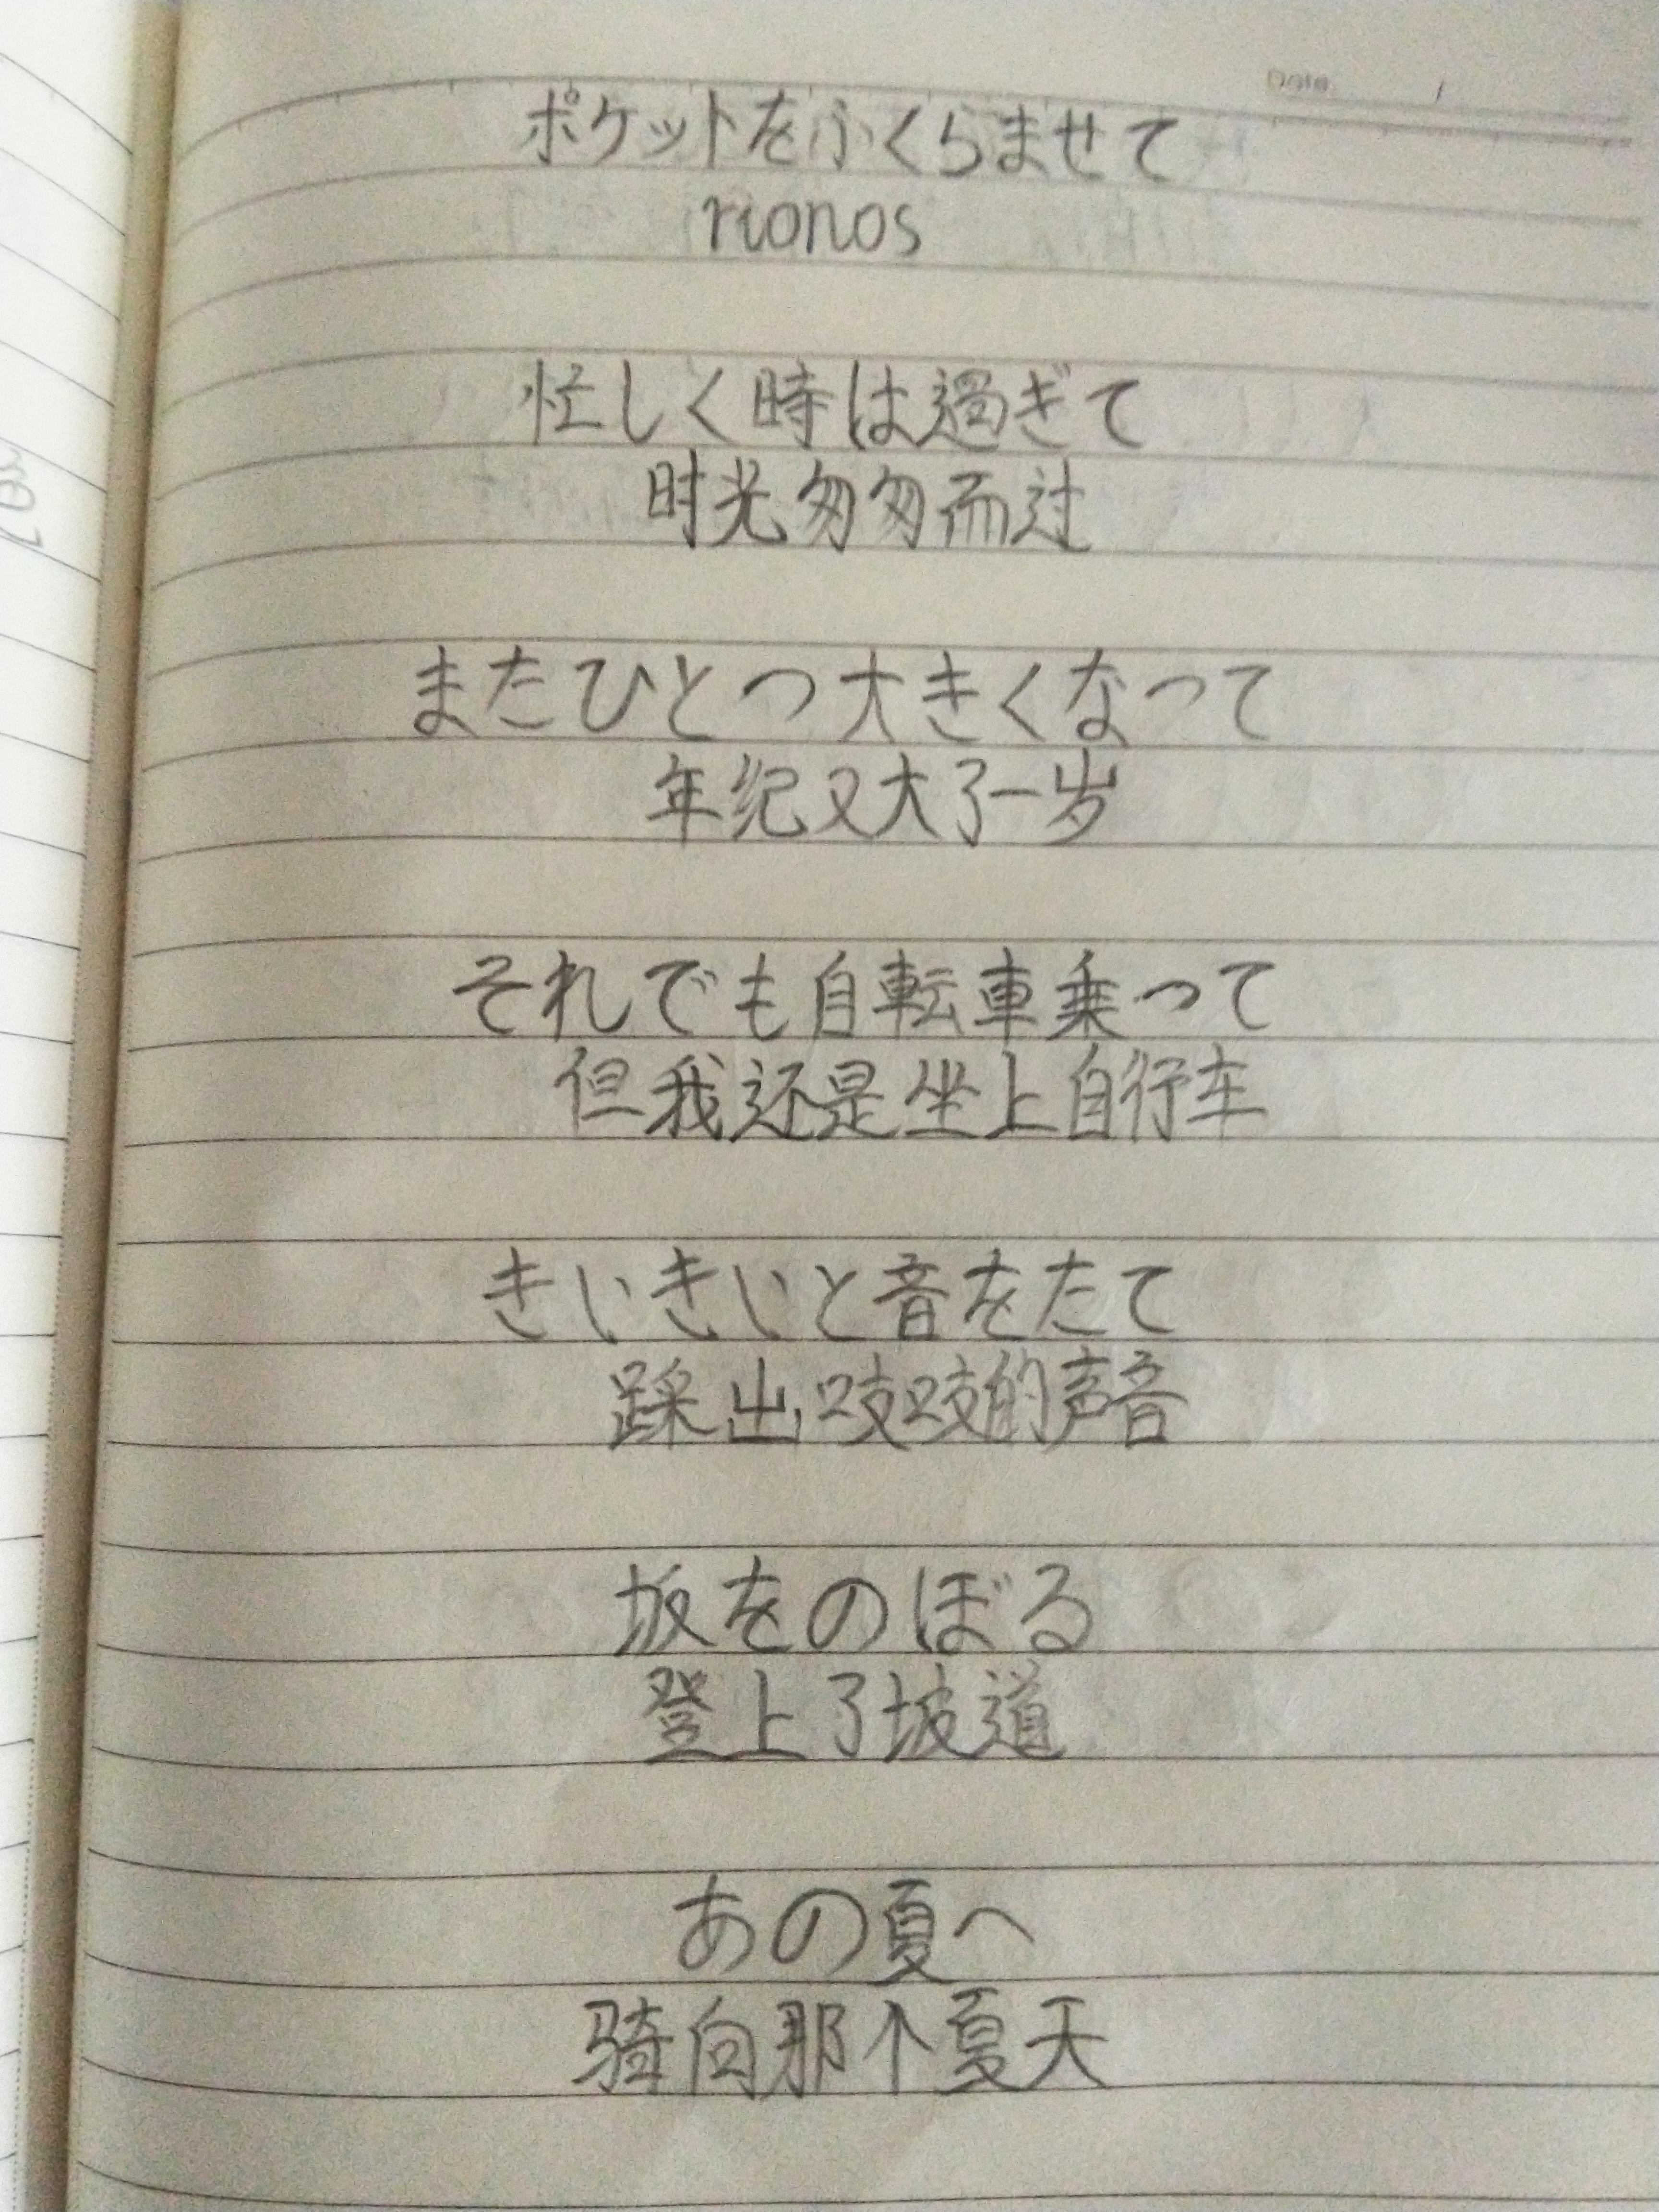 Date
ポケットをふくらませて
rionos
忙しく時は過ぎて
时光匆匆而过
またひとつ大きくなって
年纪又大了一岁
それでも自転車乗って
但我还是坐上自行车
きいきいと音をたて
踩出吱吱的声音
坂をのぼる
登上了坡道
あの夏へ
骑向那个夏天